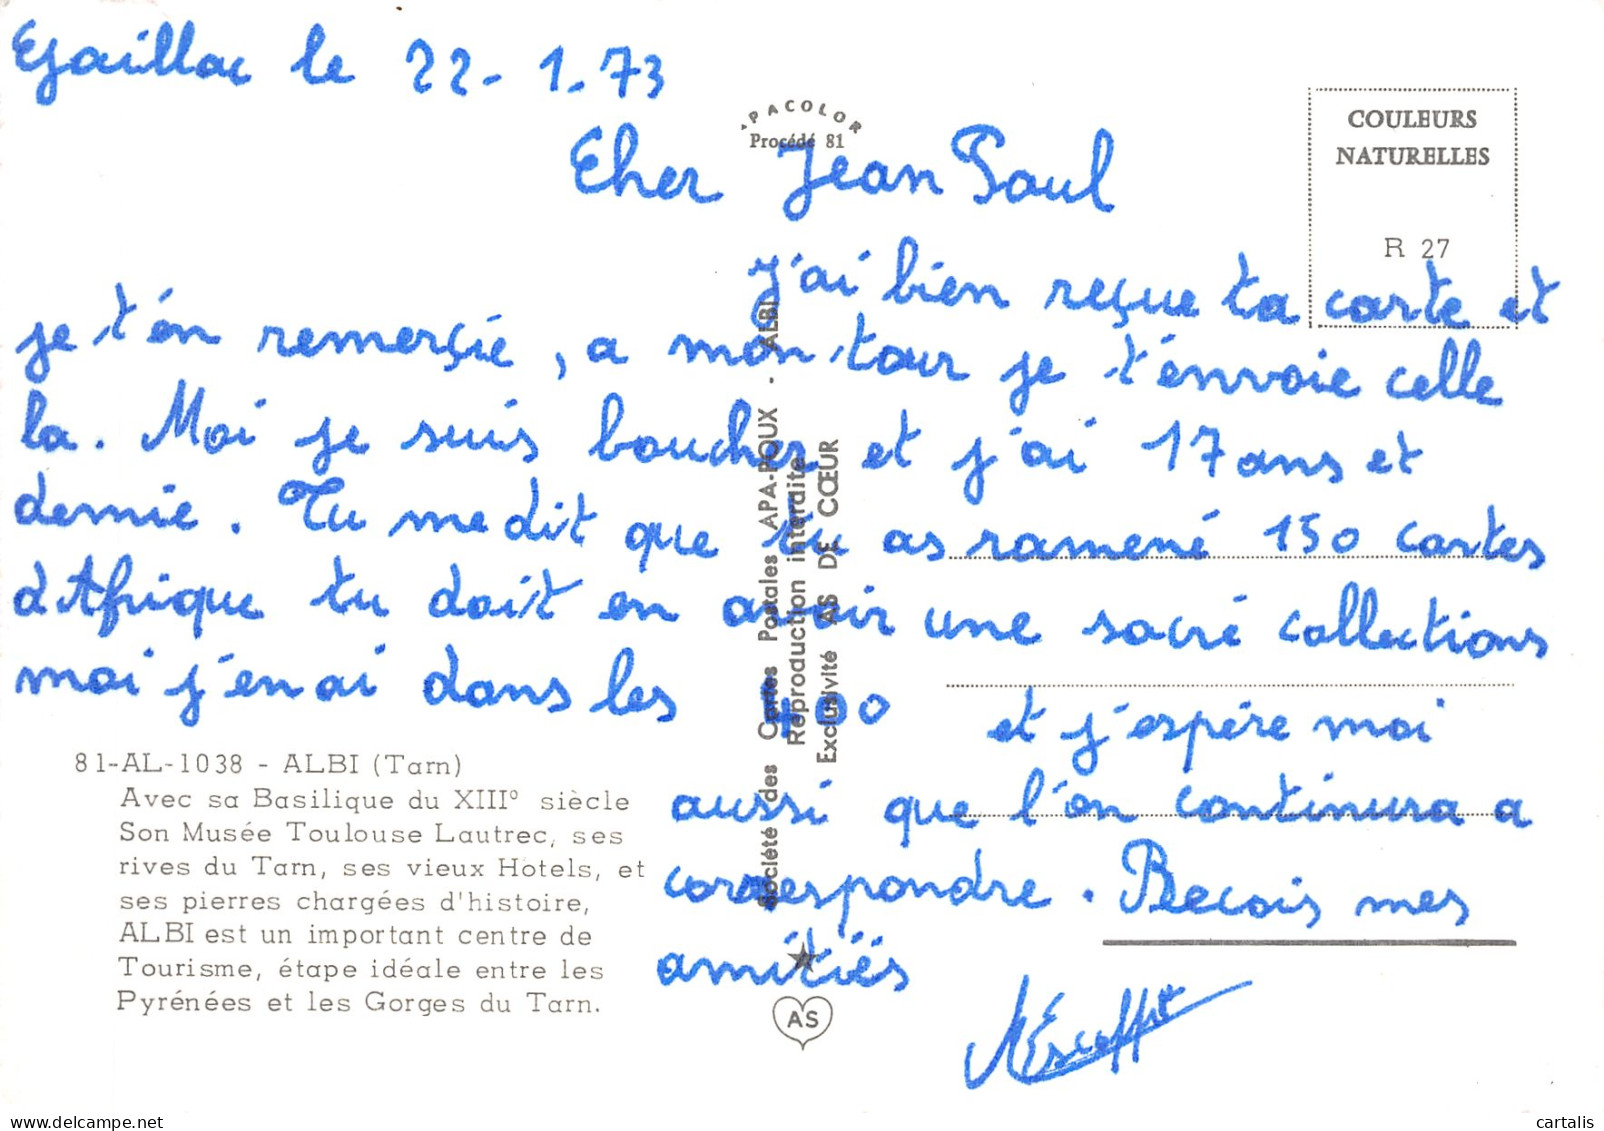 Gaillac le 22-1.73
APACOLOR
Procédé 81
COULEURS
NATURELLES
R 27
Cher Jean Paul
J'ai bien reçue ta carte et
je t'én remerçie, a mon tour je t'énvoie celle
la. Moi je suis boucher et j'ai 17 ans et
demie. Tu me dit que tu as ramené 150 cartes
d'Afrique tu doit en avoir une sacré collections
moi j'en ai dans les 400 et j'espére moi
aussi que l'on continura a
correspondre. Recois mes
amitiés
81-AL-1038 - ALBI (Tarn)
Avec sa Basilique du XIII° siècle
Son Musée Toulouse Lautrec, ses
rives du Tarn, ses vieux Hôtels, et
ses pierres chargées d'histoire,
ALBI est un important centre de
Tourisme, étape idéale entre les
Pyrénées et les Gorges du Tarn.
Société des Cartes Postales APA-POUX - ALBI
Reproduction interdite
Exclusivité AS DE CŒUR
AS
cartalis
www.delcampe.net